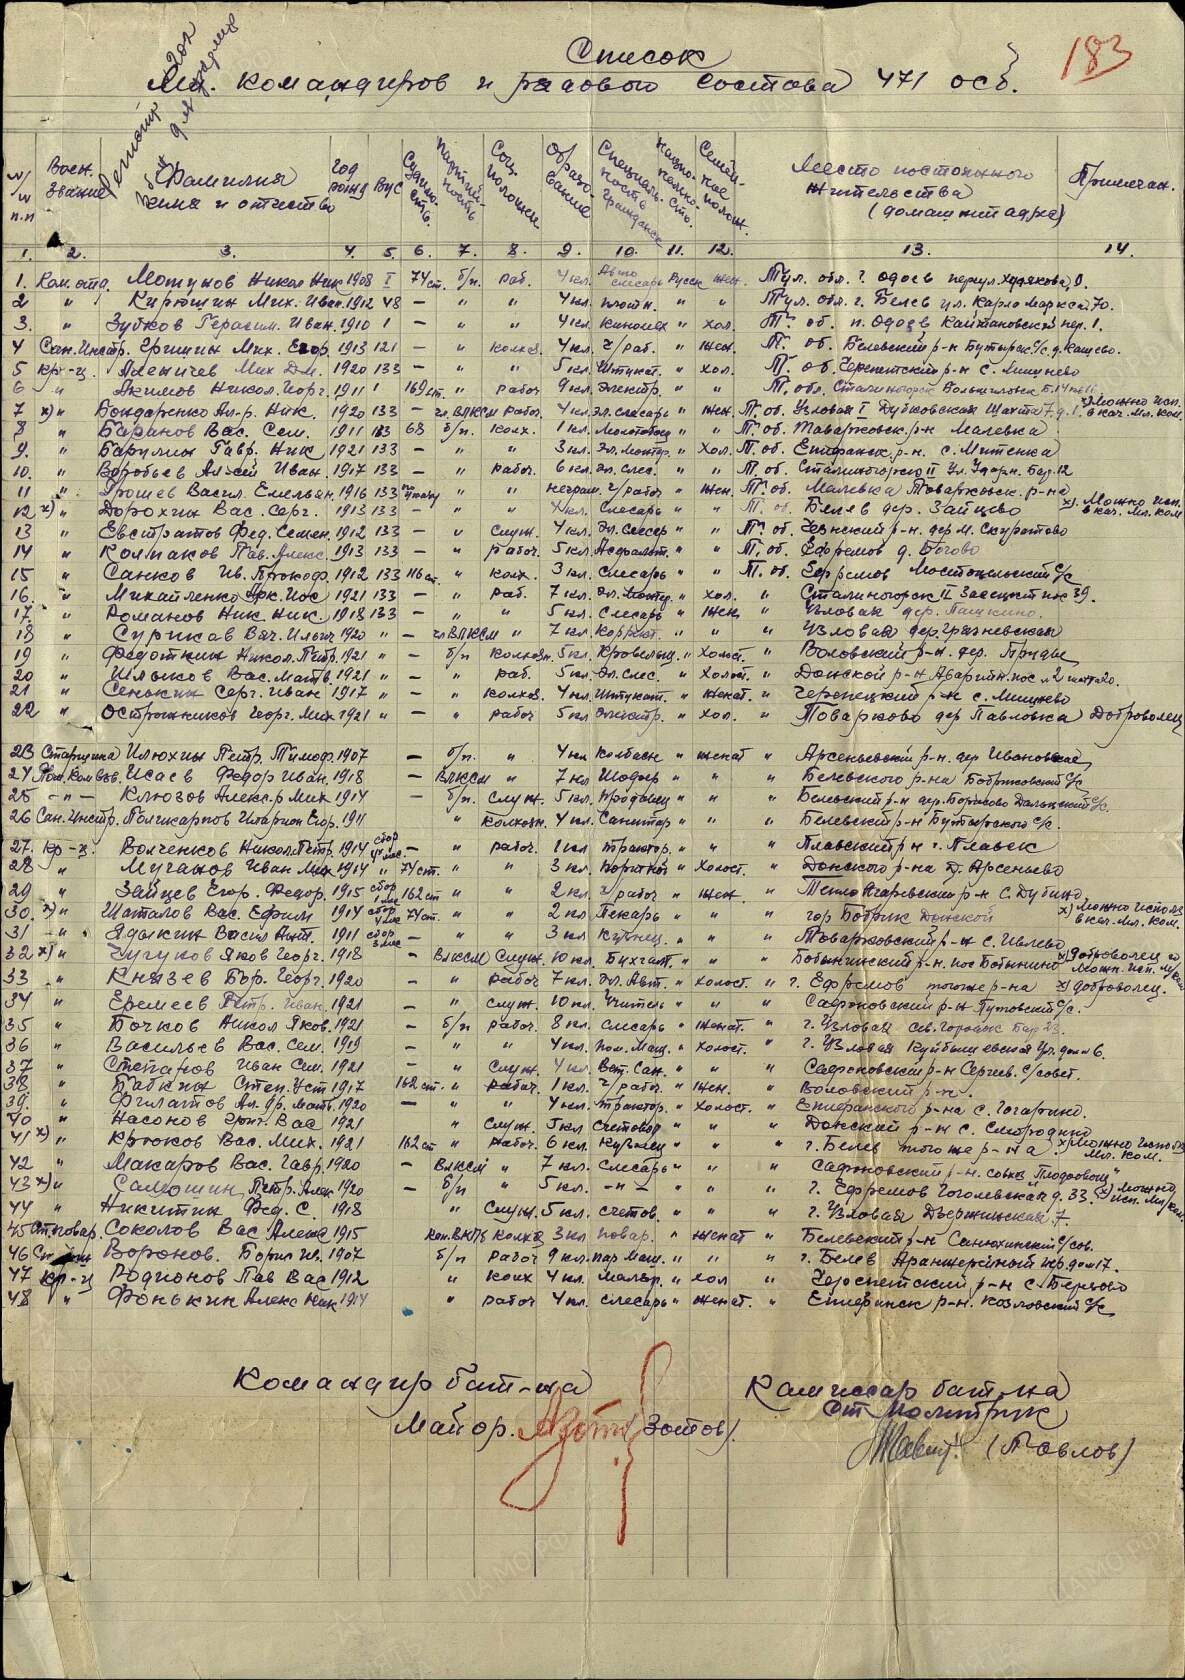 183
Список
Мл. командиров и рядового состава 471 осб.
№/№ п.п Воен. звание Фамилия имя и отчество Год рожд Вус Судимость Партийность Соц. положен Образование Специальность гражданск Национальность Семейное полож. Место постоянного жительства (домашний адрес) Примечан.
1. 2. 3. 4. 5. 6. 7. 8. 9. 10. 11. 12. 13. 14.
1. Ком. отд. Никол Ник 1908 I 74 ст. б/п. раб. 4 кл. Авто слесарь Русск жен. Тул. обл. г. Одоев переул. 0.
2 " Кирюшин Мих. Иван. 1912 48 — " " 4 кл. плотн. " " Тул. обл. г. Белев ул. Карла Маркса 70.
3. " Зубков Герасим. Иван. 1910 1 — " " 4 кл. киномех " хол. Т. об. п. Одоев пер. 1.
4 Сан. Инстр. Мих. Егор. 1913 121 — " колхоз. 4 кл. ч/раб. " жен. Т. об. Белевский р-н Бутырск. с/с д. Кащево.
5 кр-ц. Мих Дм. 1920 133 — " " 5 кл. Штукат. " хол. Т. об. Черепетский р-н с. Мишнево
6 " Акимов Никол. Георг. 1911 1 169 ст. " рабоч 9 кл. Электр. " " Т. обл. Сталиногорск
7 х) " Бондаренко Ал-р. Ник. 1920 133 — чл. ВЛКСМ рабоч. 4 кл. эл. слесарь " жен. Т. об. Узловая I Дубковская Шахта 7 д. 1. х) Можно исп. в кач. мл. ком.
8 " Баранов Вас. Сем. 1911 133 68 б/п. колх. 1 кл. " " Т. об. Товарковск. р-н Малевка
9. " Гавр. Ник 1921 133 — " " 3 кл. Эл. монтер. " Хол. Т. об. Епифанск. р-н. с. Митенка
10. " Воробьев Алексей Иван. 1917 133 — " рабоч. 6 кл. Эл. слес. " " Т. об. Сталиногорск II Ул. Ударн. Бар. 12
11 " Грошев Васил. Емельян. 1916 133 " " неграм. ч/рабоч " жен. Т. об. Малевка Товарковск. р-на
12 х) " Дорохин Вас. Серг. 1913 133 — " " 4 кл. Слесарь " " Т. об. Белев дер. Зайцево х) Можно исп. в кач. мл. ком
13 " Евстратов Фед. Семен. 1912 133 — " служ. 4 кл. Эл. Слесар " " Т. об. р-н. дер. М. Скуратово
14 " Колпаков Пав. Алекс. 1913 133 — " рабоч. 5 кл. Асфальт. " " Т. об. Ефремов д.
15 " Санков Ив. Прокоф. 1912 133 116 ст. " колх. 3 кл. Слесарь " " Т. об. Ефремов с/с
16. " Михайленко Арк. Иос 1921 133 — " раб. 7 кл. Эл. Монтер. " хол. " Сталиногорск II Заоцкий пос 39.
17. " Романов Ник. Ник. 1918 133 — " " 5 кл. Слесарь " жен. " Узловая дер. Пашкино.
18 " Суриков Вяч. Ильич 1920 " — чл ВЛКСМ " 7 кл. " " " Узловая дер. Грязневская
19 " Федоткин Никол. Петр. 1921 " — б/п колхозн. 5 кл. Кровельщ. " Холост. " Воловский р-н. дер.
20 " Шлыков Вас. Матв. 1921 " — " раб. 5 кл. Эл. слес. " Холост. " Донской р-н Аварийн. пос
21 " Сенькин Серг. Иван 1917 " — " колхоз. 4 кл. Штукат. " женат. " Черепецкий р-н с. Мишнево
22 " Острожников Георг. Мих 1921 " — " рабоч 5 кл Электр. " Хол. " Товарково дер Павловка Доброволец
23 Старшина Илюхин Петр. Тимоф. 1907 — б/п. " 4 кл Колбасн " женат " Арсеньевский р-н. дер Ивановское
24 Пом. Ком взв. Исаев Федор Иван. 1918 — ВЛКСМ " 7 кл Шофер " " " Белевского р-на Бобриковский с/с
25 — " — Клюзов Алекс-р Мих 1914 — б/п. Служ. 5 кл. продавец " " " Белевский р-н дер. с/с.
26 Сан. Инстр. Поликарпов Иларион Егор. 1911 " колхозн. 4 кл. Санитар " " " Белевский р-н Бутырского с/с.
27. кр-ц. Волченков Никол. Петр. 1914 сбор — " рабоч. 1 кл трактор. " " " Плавский р-н г. Плавск
28 " Иван Мих 1914 " 74 ст. " " 3 кл. портной " Холост. " Донского р-на д. Арсеньево
29 " Зайцев Егор. Федор. 1915 сбор 1 мес 162 ст " " 2 кл. ч/рабоч " жен. " Тепло-Огаревский р-н с. Дубики
30. х) " Шаталов Вас. Ефим 1914 сбор 74 ст. " " 2 кл Пекарь " " " гор Бобрик Донской х) Можно использ в кач. мл. ком.
31 — " Ядыкин Васил Ант. 1911 сбор 3 мес — " " 3 кл Кузнец. " " " Товарковский р-н с. Ивлево
32 х) " Чугунов Яков Георг. 1918 — ВЛКСМ Служ. 10 кл. Бухгалт. " " " Бабынинский р-н. пос Бабынино х) доброволец и можн. исп. м/ком
33 " Князев Бор. Георг. 1920 — " рабоч 7 кл. Эл. Авт. " холост. " г. Ефремов того же р-на х) доброволец.
34 " Еремеев Петр. Иван. 1921 — " служ. 10 кл. Учитель " " " Сафоновский р-н с/с.
35 " Бочков Никол Яков. 1921 — б/п рабоч. 8 кл. слесарь " женат. " г. Узловая Бар 23.
36 " Васильев Вас. Сем. 1919 — " " 4 кл. пом. маш. " холост. " г. Узловая Куйбышевская ул. дом 6.
37 " Степанов Иван Сем. 1921 — " служ. 4 кл Вет. Сан. " " " Сафоновский р-н Сергиев. с/совет.
38 " Бабкин Степ. Уст 1917 162 ст. " рабоч. 1 кл. ч/рабоч. " жен. " Воловский р-н.
39. " Филатов Ал-др. Матв. 1920 — " " 4 кл. трактор. " холост. " Епифанского р-на с. Гагарино.
40 " Насонов Григ. Вас 1921 " служ. 5 кл счетовод " " " Донской р-н с. Смородино
41 х) " Крюков Вас. Мих. 1921 162 ст " рабоч. 6 кл. Кузнец " " " г. Белев того же р-на х) Можно использ мл. ком.
42 " Макаров Вас. Гавр. 1920 — ВЛКСМ " 7 кл. Слесарь " " " Сафоновский р-н. совх.
43 х) " Самошин Петр. Алек 1920 — б/п " 5 кл. — " — " " " г. Ефремов Гоголевская д. 33. х) можно исп. мл/ком.
44 " Никитин Фед. С. 1918 " Служ. 5 кл. счетов. " " " г. Узловая Дзержинская 7.
45 Ст. повар. Соколов Вас Алекс 1915 кан. ВКПб колхоз 3 кл повар. " женат " Белевский р-н с/сов.
46 Воронов. Борис Ив. 1907 б/п рабоч 9 кл. пар Маш. " " " г. Белев Аранжерейный пер. дом 17.
47 кр-ц Родионов Пав Вас 1912 " колх 4 кл. маляр. " хол " Черепетский р-н с. Березово
48 " Фонькин Алекс Ник 1914 " рабоч 4 кл. слесарь " женат. " Епифанск р-н. Козловский с/с
Командир бат-на
Комиссар бат-на
Ст Политрук
Майор. Зотов).
(Павлов)